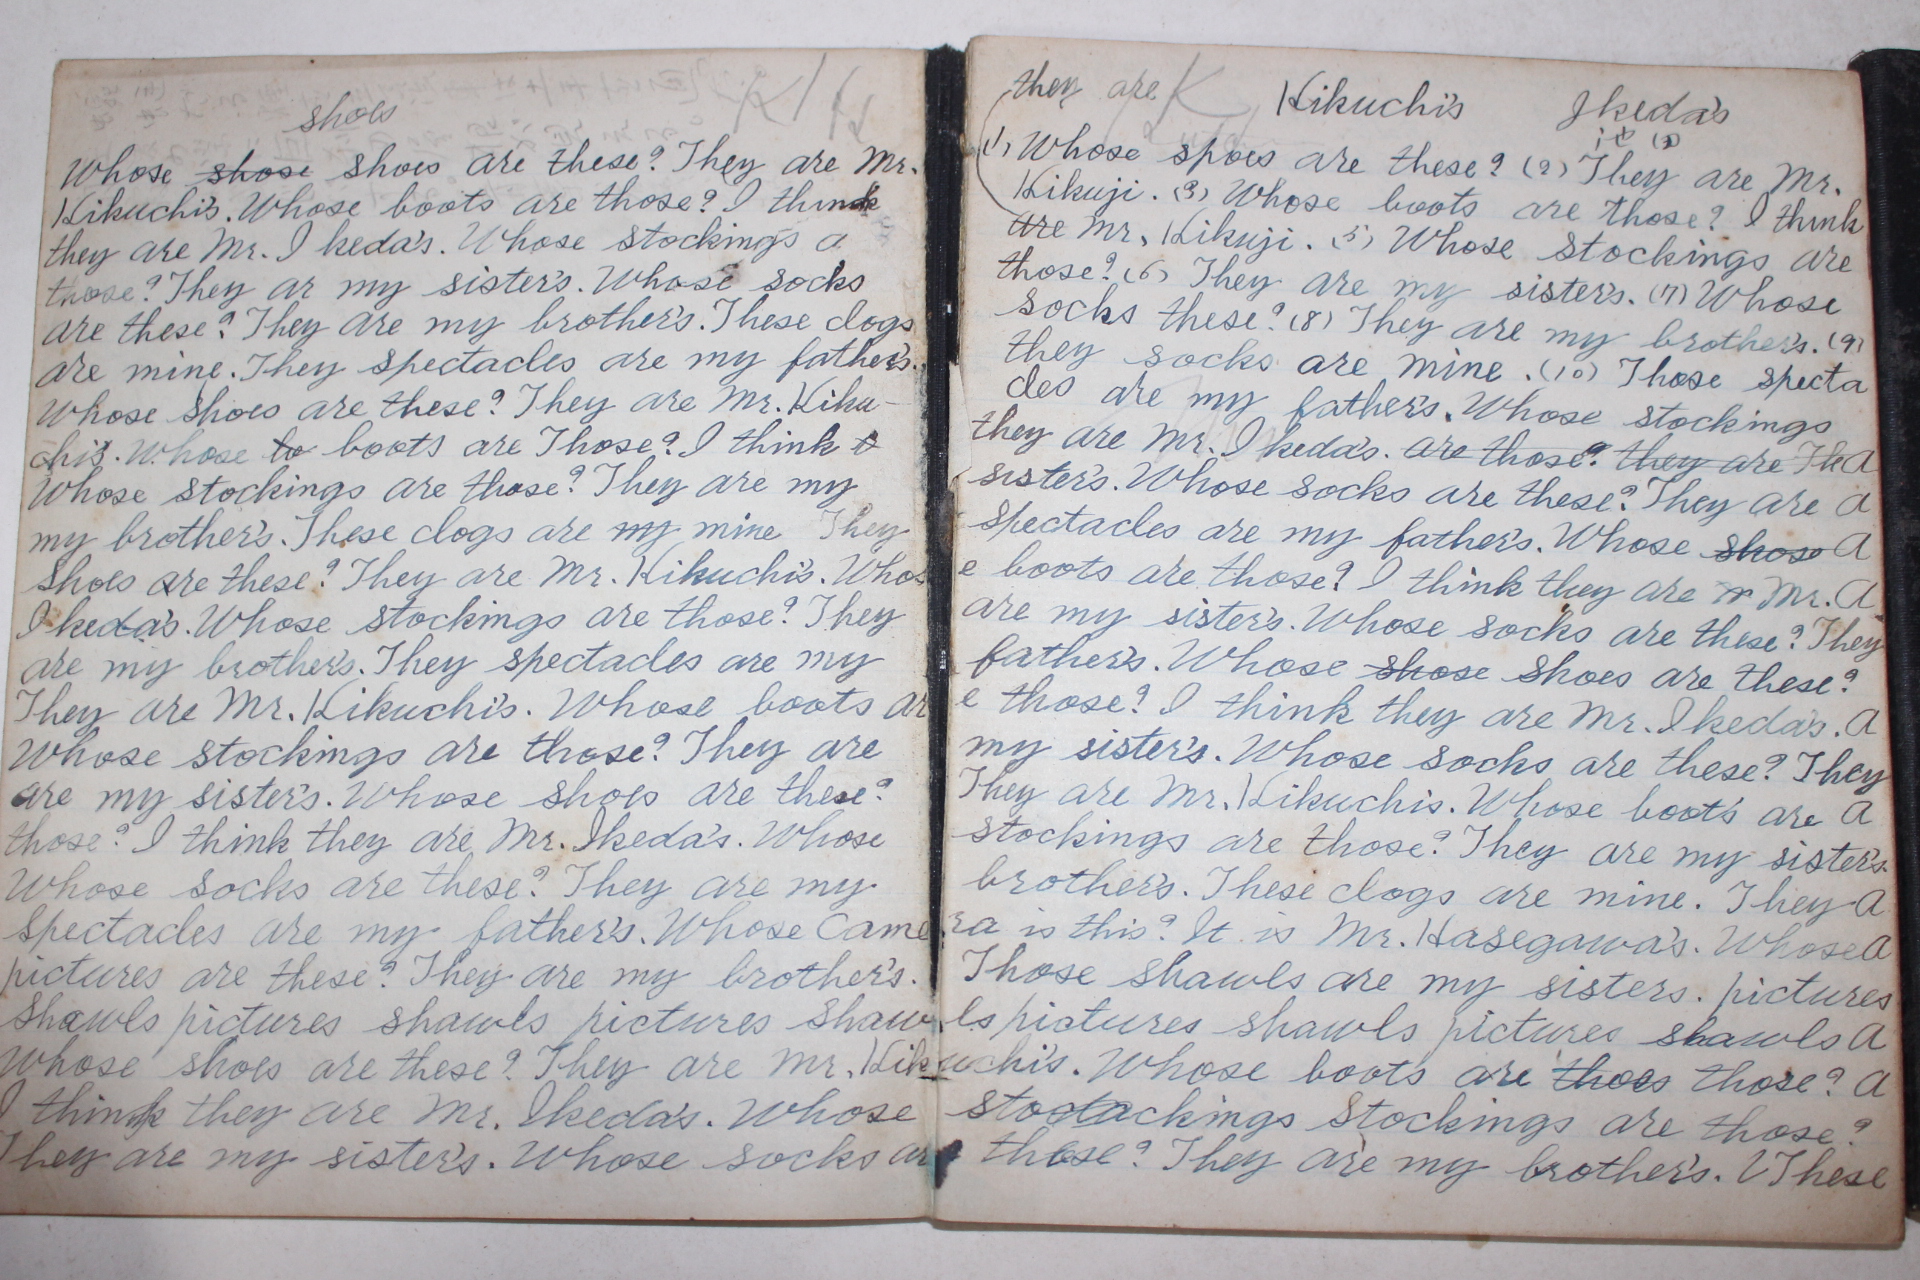 shoes
Whose shose shoes are these? They are Mr.
Kikuchi's. Whose boots are those? I think
they are Mr. Ikeda's. Whose stockings a
those? They ar my sister's. Whose socks
are these? They are my brother's. These clogs
are mine. They spectacles are my father's.
Whose shoes are these? They are Mr. Kiku-
chi's. Whose to boots are Those? I think t
Whose stockings are those? They are my
my brother's. These clogs are my mine They
shoes are these? They are Mr. Kikuchi's. Whos
Ikeda's. Whose stockings are those? They
are my brother's. They spectacles are my
They are Mr. Kikuchi's. Whose boots ar
Whose stockings are those? They are
are my sister's. Whose shoes are these?
those? I think they are Mr. Ikeda's. Whose
Whose socks are these? They are my
spectacles are my father's. Whose Came
pictures are these? They are my brother's.
shawls pictures shawls pictures shaw
Whose shoes are these? They are Mr. Kik
I think they are Mr. Ikeda's. Whose
They are my sister's. Whose socks ar
they are K Kikuchi's Ikeda's
(1) Whose spoes are these? (2) They are Mr.
Kikuji. (3) Whose boots are those? I think
are Mr. Kikuji. (5) Whose stockings are
those? (6) They are my sister's. (7) Whose
socks these? (8) They are my brother's. (9)
they socks are mine. (10) Those specta
cles are my father's. Whose stockings
they are Mr. Ikeda's. are those? they are The a
sister's. Whose socks are these? They are a
spectacles are my father's. Whose shose a
e boots are those? I think they are Mr. a
are my sister's. Whose socks are these? They
father's. Whose shose shoes are these?
e those? I think they are Mr. Ikeda's. a
my sister's. Whose socks are these? They
They are Mr. Kikuchi's. Whose boots are a
stockings are those? They are my sister's.
brother's. These clogs are mine. They a
ra is this? It is Mr. Hasegawa's. Whose a
Those shawls are my sisters. pictures
ls pictures shawls pictures shawls a
uchi's. Whose boots are thoes those? a
stoctackings stockings are those?
those? They are my brother's. These